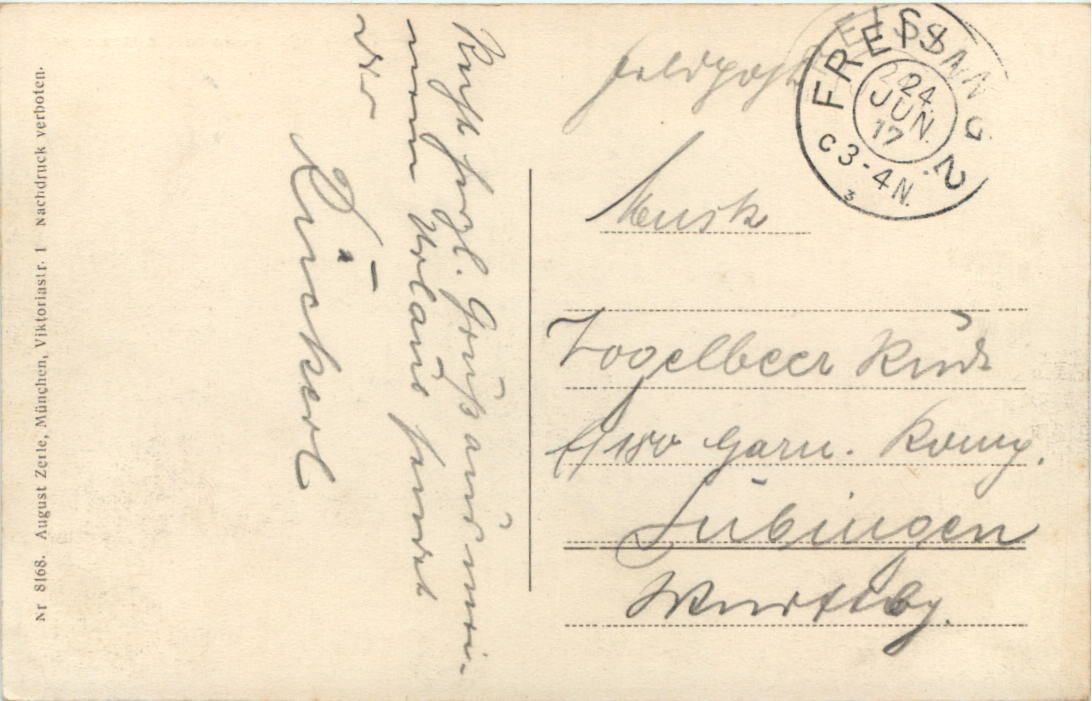 Nr 8168. August Zerle, München, Viktoriastr. 1 Nachdruck verboten.
Recht herzl. Gruß aus mei-
nem Urlaub sendet
Dir
Rückerl
Feldpost
FREISING 2.
24.
JUN.
17
c 3-4 N.
Musk
Vogelbeer
E/180 Garn. Komp.
Tübingen
Württbg.